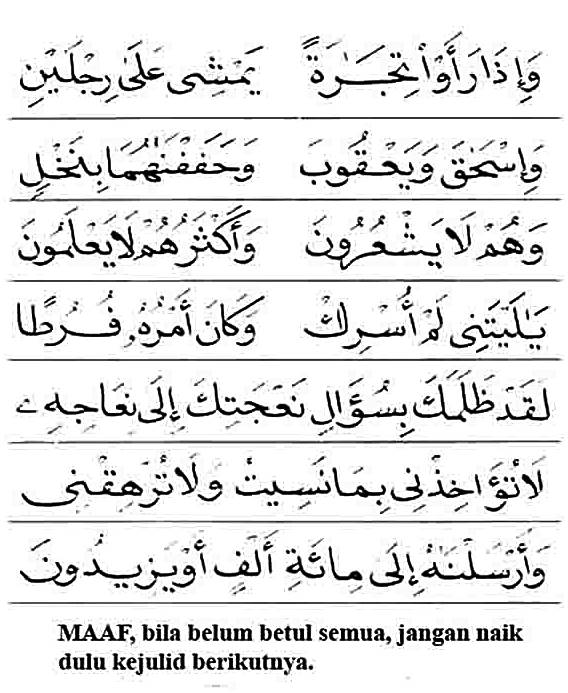 وَإِذَا رَأَوْا۟ تِجَـٰرَةً يَمْشِى عَلَىٰ رِجْلَيْنِ
وَإِسْحَـٰقَ وَيَعْقُوبَ وَحَفَفْنَـٰهُمَا بِنَخْلٍ
وَهُمْ لَا يَشْعُرُونَ وَأَكْثَرُهُمْ لَا يَعْلَمُونَ
يَـٰلَيْتَنِى لَمْ أُشْرِكْ وَكَانَ أَمْرُهُۥ فُرُطًا
لَقَدْ ظَلَمَكَ بِسُؤَالِ نَعْجَتِكَ إِلَىٰ نِعَاجِهِۦ
لَا تُؤَاخِذْنِى بِمَا نَسِيتُ وَلَا تُرْهِقْنِى
وَأَرْسَلْنَـٰهُ إِلَىٰ مِا۟ئَةِ أَلْفٍ أَوْ يَزِيدُونَ
MAAF, bila belum betul semua, jangan naik
dulu kejulid berikutnya.